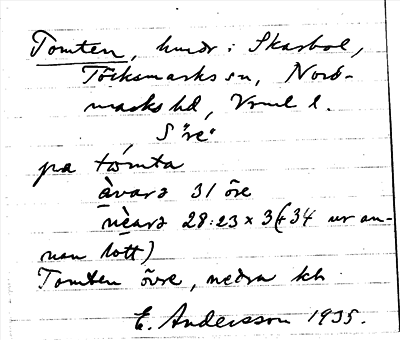 Tomten, hmdr i Skarbol,
Töcksmarks sn, Nord-
marks hd, Vrml l.
5 öre
pa tomta
àvarə 31 öre
nèarə 28:23 x 3 (+34 ur an-
nan lott)
Tomten övre, nedra kb
E. Andersson 1935.